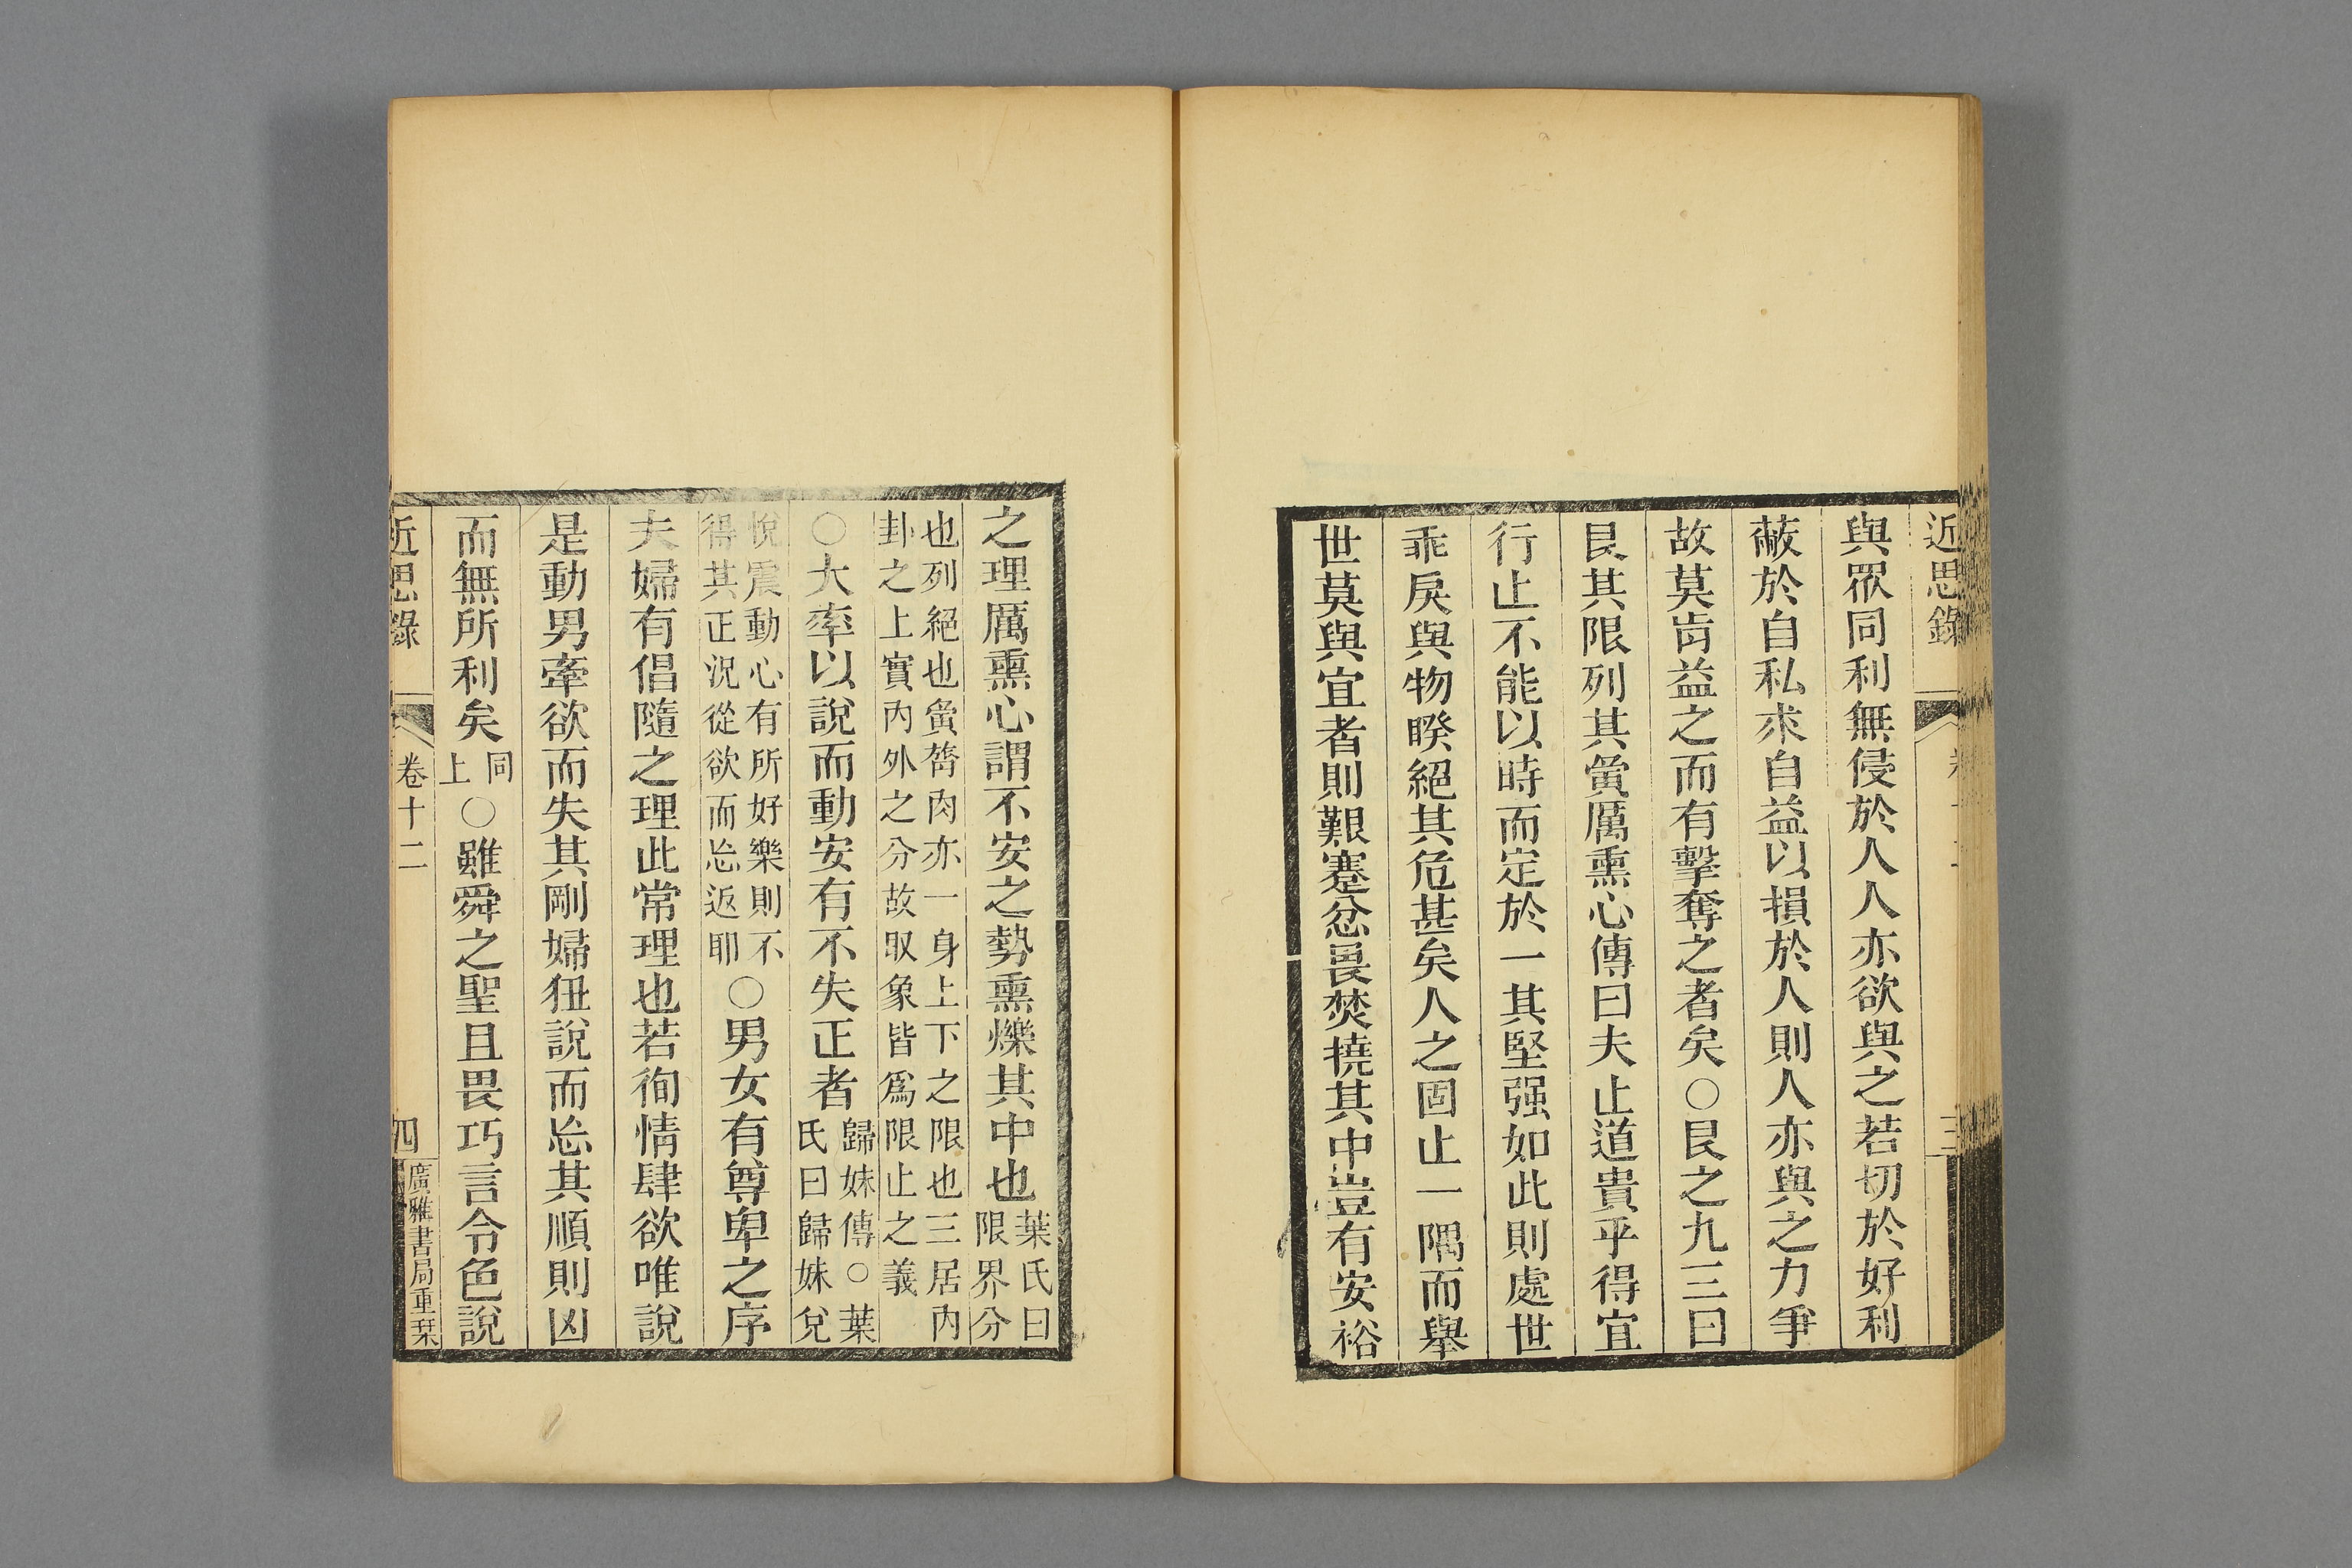 近思錄
與眾同利無侵於人人亦欲與之若切於好利
蔽於自私求自益以損於人則人亦與之力爭
故莫肯益之而有擊奪之者矣○艮之九三曰
艮其限列其夤厲熏心傳曰夫止道貴乎得宜
行止不能以時而定於一其堅强如此則處世
乖戾與物睽絕其危甚矣人之固止一隅而舉
世莫與宜者則艱蹇忿畏焚撓其中豈有安裕
之理厲熏心謂不安之勢熏爍其中也
葉氏曰
限界分
也列絕也夤膂肉亦一身上下之限也三居內
卦之上實內外之分故取象皆爲限止之義
○大率以說而動安有不失正者
歸妹傳○葉
氏曰歸妹兌
悅震動心有所好樂則不
得其正況從欲而忘返耶
○男女有尊卑之序
夫婦有倡隨之理此常理也若徇情肆欲唯說
是動男牽欲而失其剛婦狃說而忘其順則凶
而無所利矣
同
上
○雖舜之聖且畏巧言令色說
近思錄
卷十二
四
廣雅書局重栞